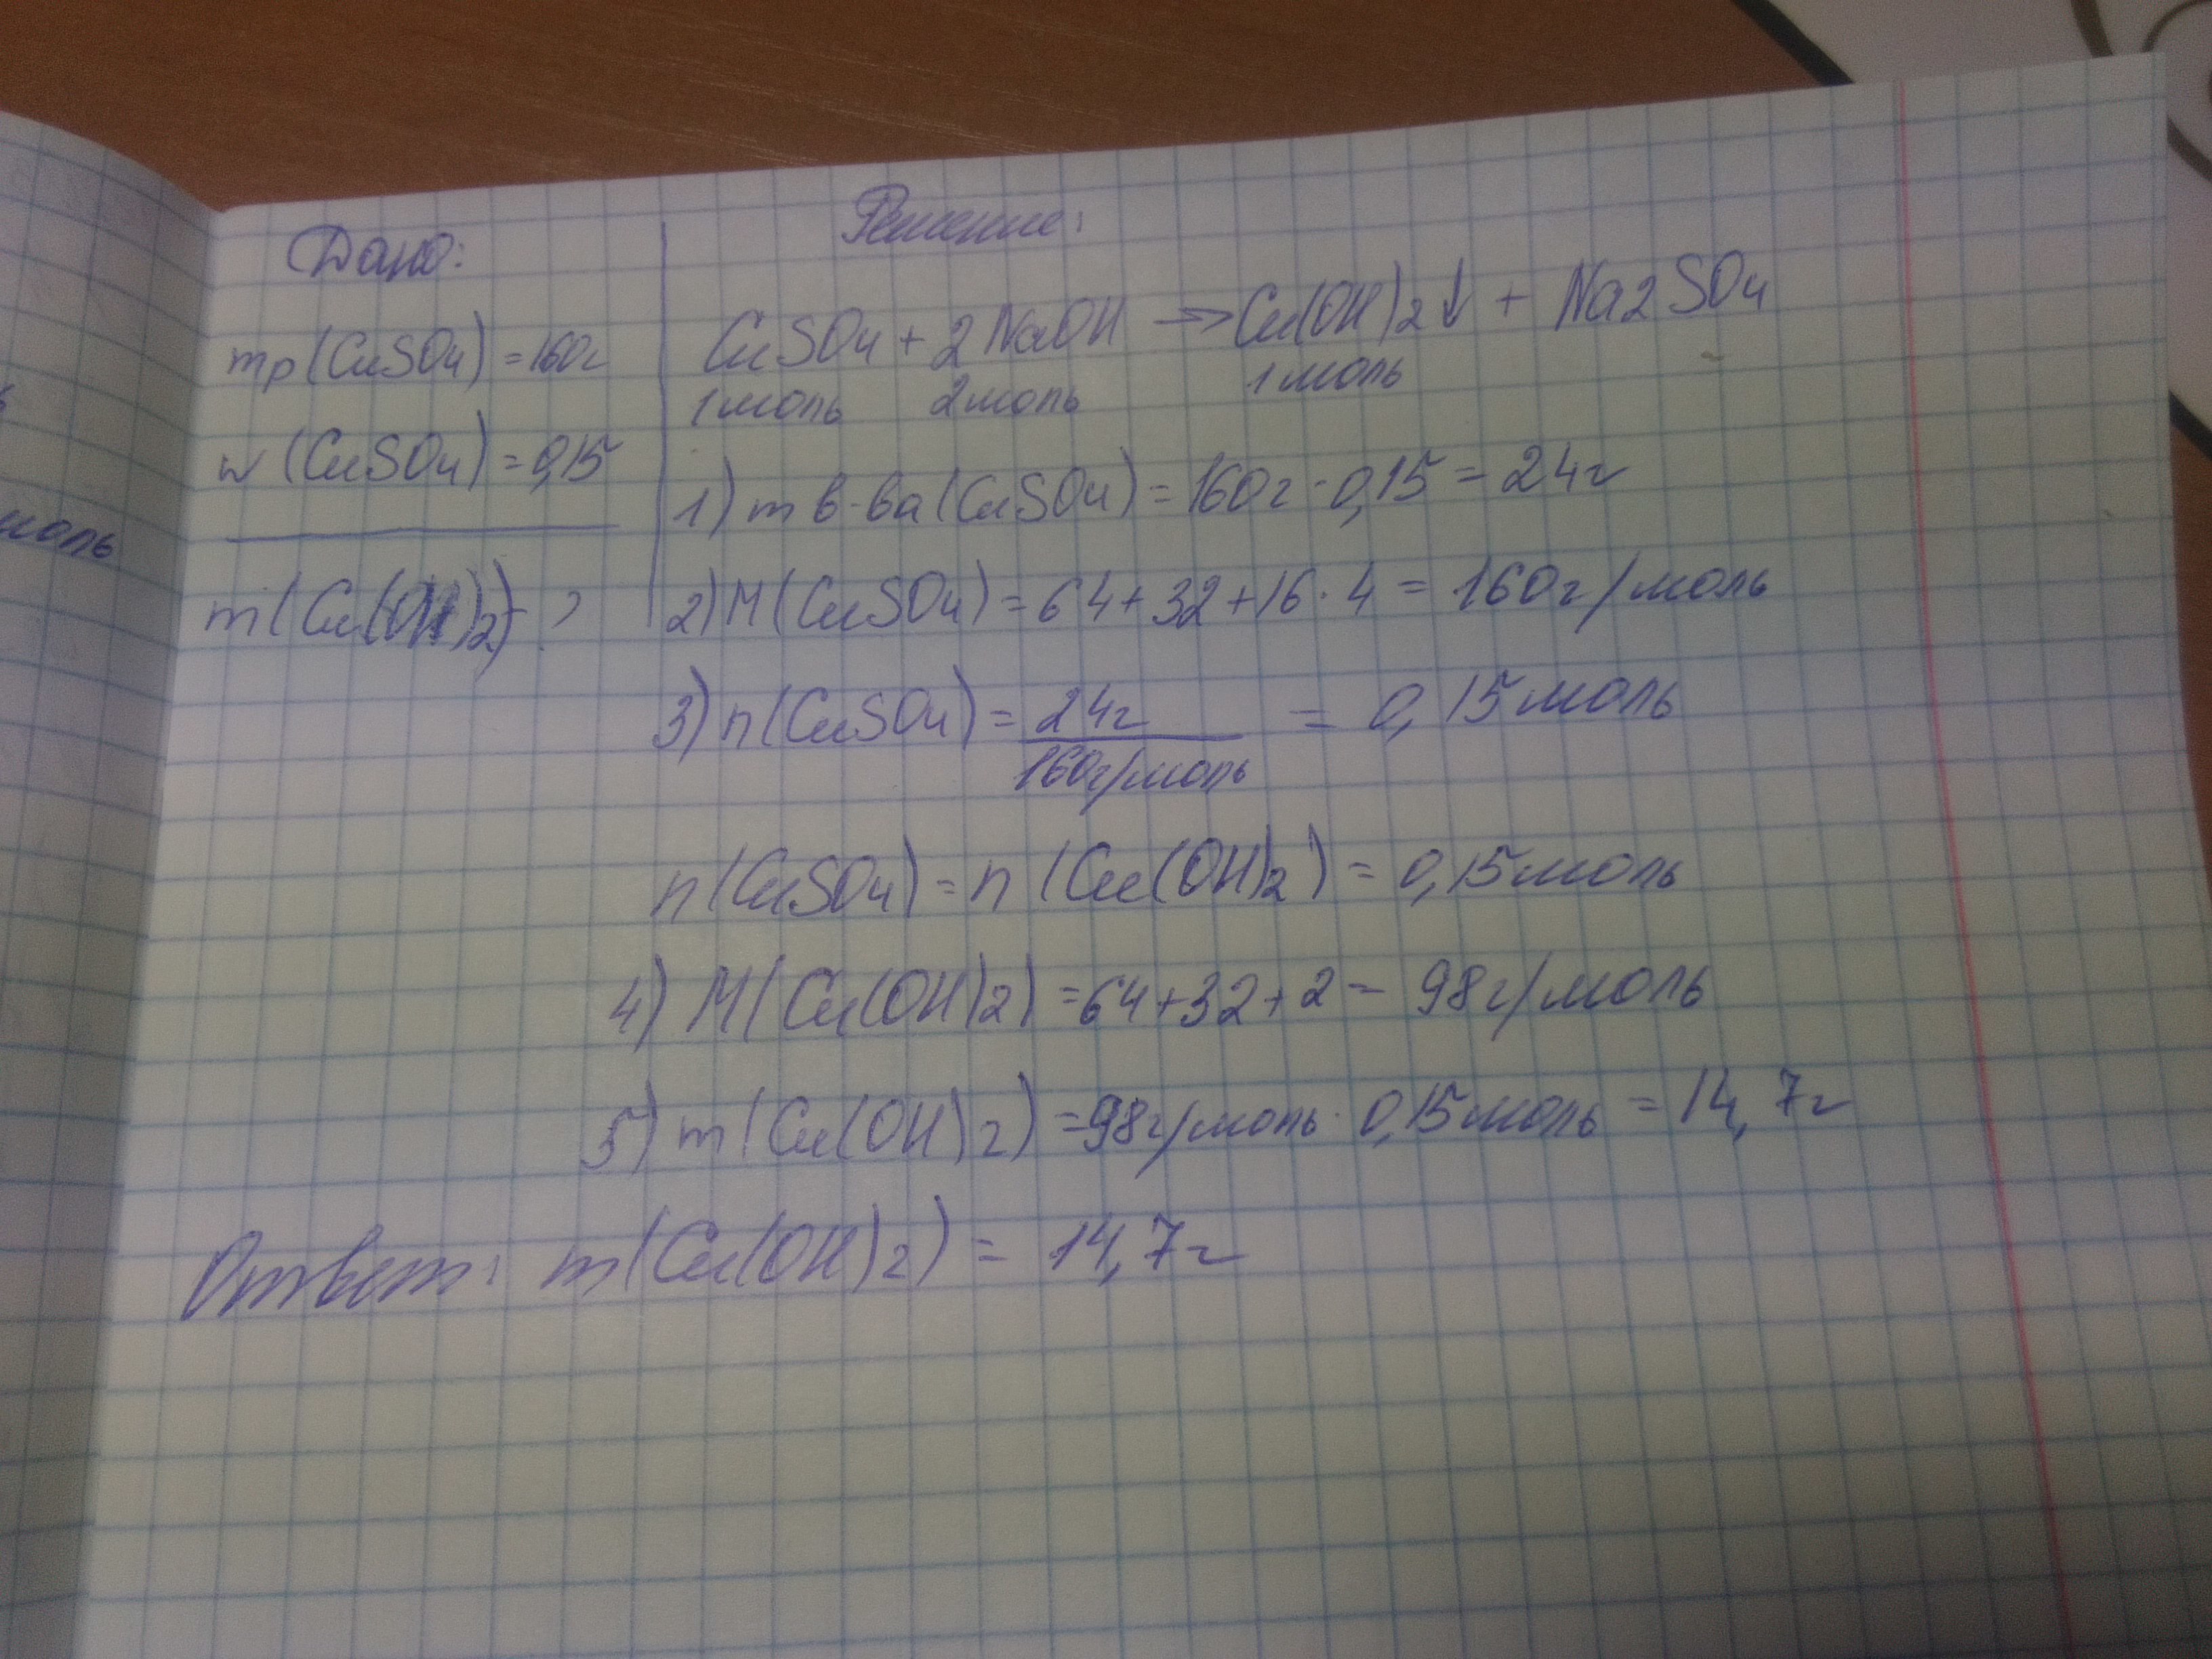 Дано:
mр(CuSO4) = 160г
w(CuSO4) = 0,15
m(Cu(OH)2) - ?
Решение:
CuSO4 + 2NaOH → Cu(OH)2↓ + Na2SO4
1моль 2моль 1моль
1) m в-ва(CuSO4) = 160г · 0,15 = 24г
2) M(CuSO4) = 64+32+16·4 = 160г/моль
3) n(CuSO4) = 24г / 160г/моль = 0,15моль
n(CuSO4) = n(Cu(OH)2) = 0,15моль
4) M(Cu(OH)2) = 64+32+2 = 98г/моль
5) m(Cu(OH)2) = 98г/моль · 0,15моль = 14,7г
Ответ: m(Cu(OH)2) = 14,7г
моль